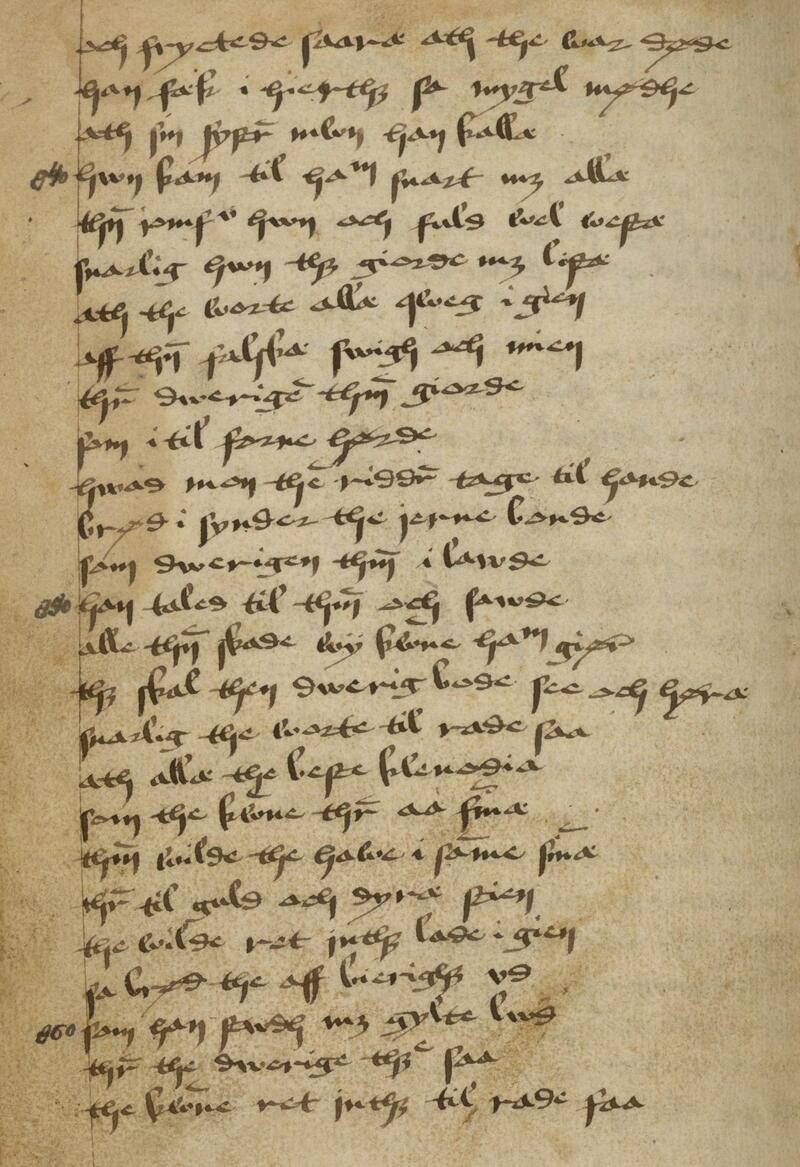 och fryctede saaræ ath the war døde
han fæk i hierthꝫ sa mygel mødhe
ath sin søstr̄ mwn han kallæ
840 hwn kam til haᵐ snart mꝫ allæ
thn̄ iomfv hwn och fuld wel westæ
snarlig hwn thꝫ giorde mꝫ listæ
ath the worte allæ qweg i gien
aff thn̄ falskæ swigh och mien
thr̄ dwerigē thm̄ giorde
som i til forne hørde
hwad mon thē riddr̄ tage til hande
brød i synder the jerne bonde
som dwerigen thm̄ i lawde
850 han taled til thm̄ och sawde
alle thn̄ skade wy kwn̄e haᵐ giør
thꝫ skal then dwerig bode see och høræ
snarlig the worte til rade saa
ath allæ the beste klenodia
som the kwn̄e thr̄ aa fin̄æ
thm̄ wilde the hawe i sam̄e sin̄æ
thr̄ til guld och dyræ stien
the wilde ret inthꝫ lade i gien
sa brød the aff bierighꝫ vd
860 som han stwdh mꝫ gylte lwd
thr̄ the dwerige thꝫᵉ saa
the kwn̄e ret inthꝫ til rade faa